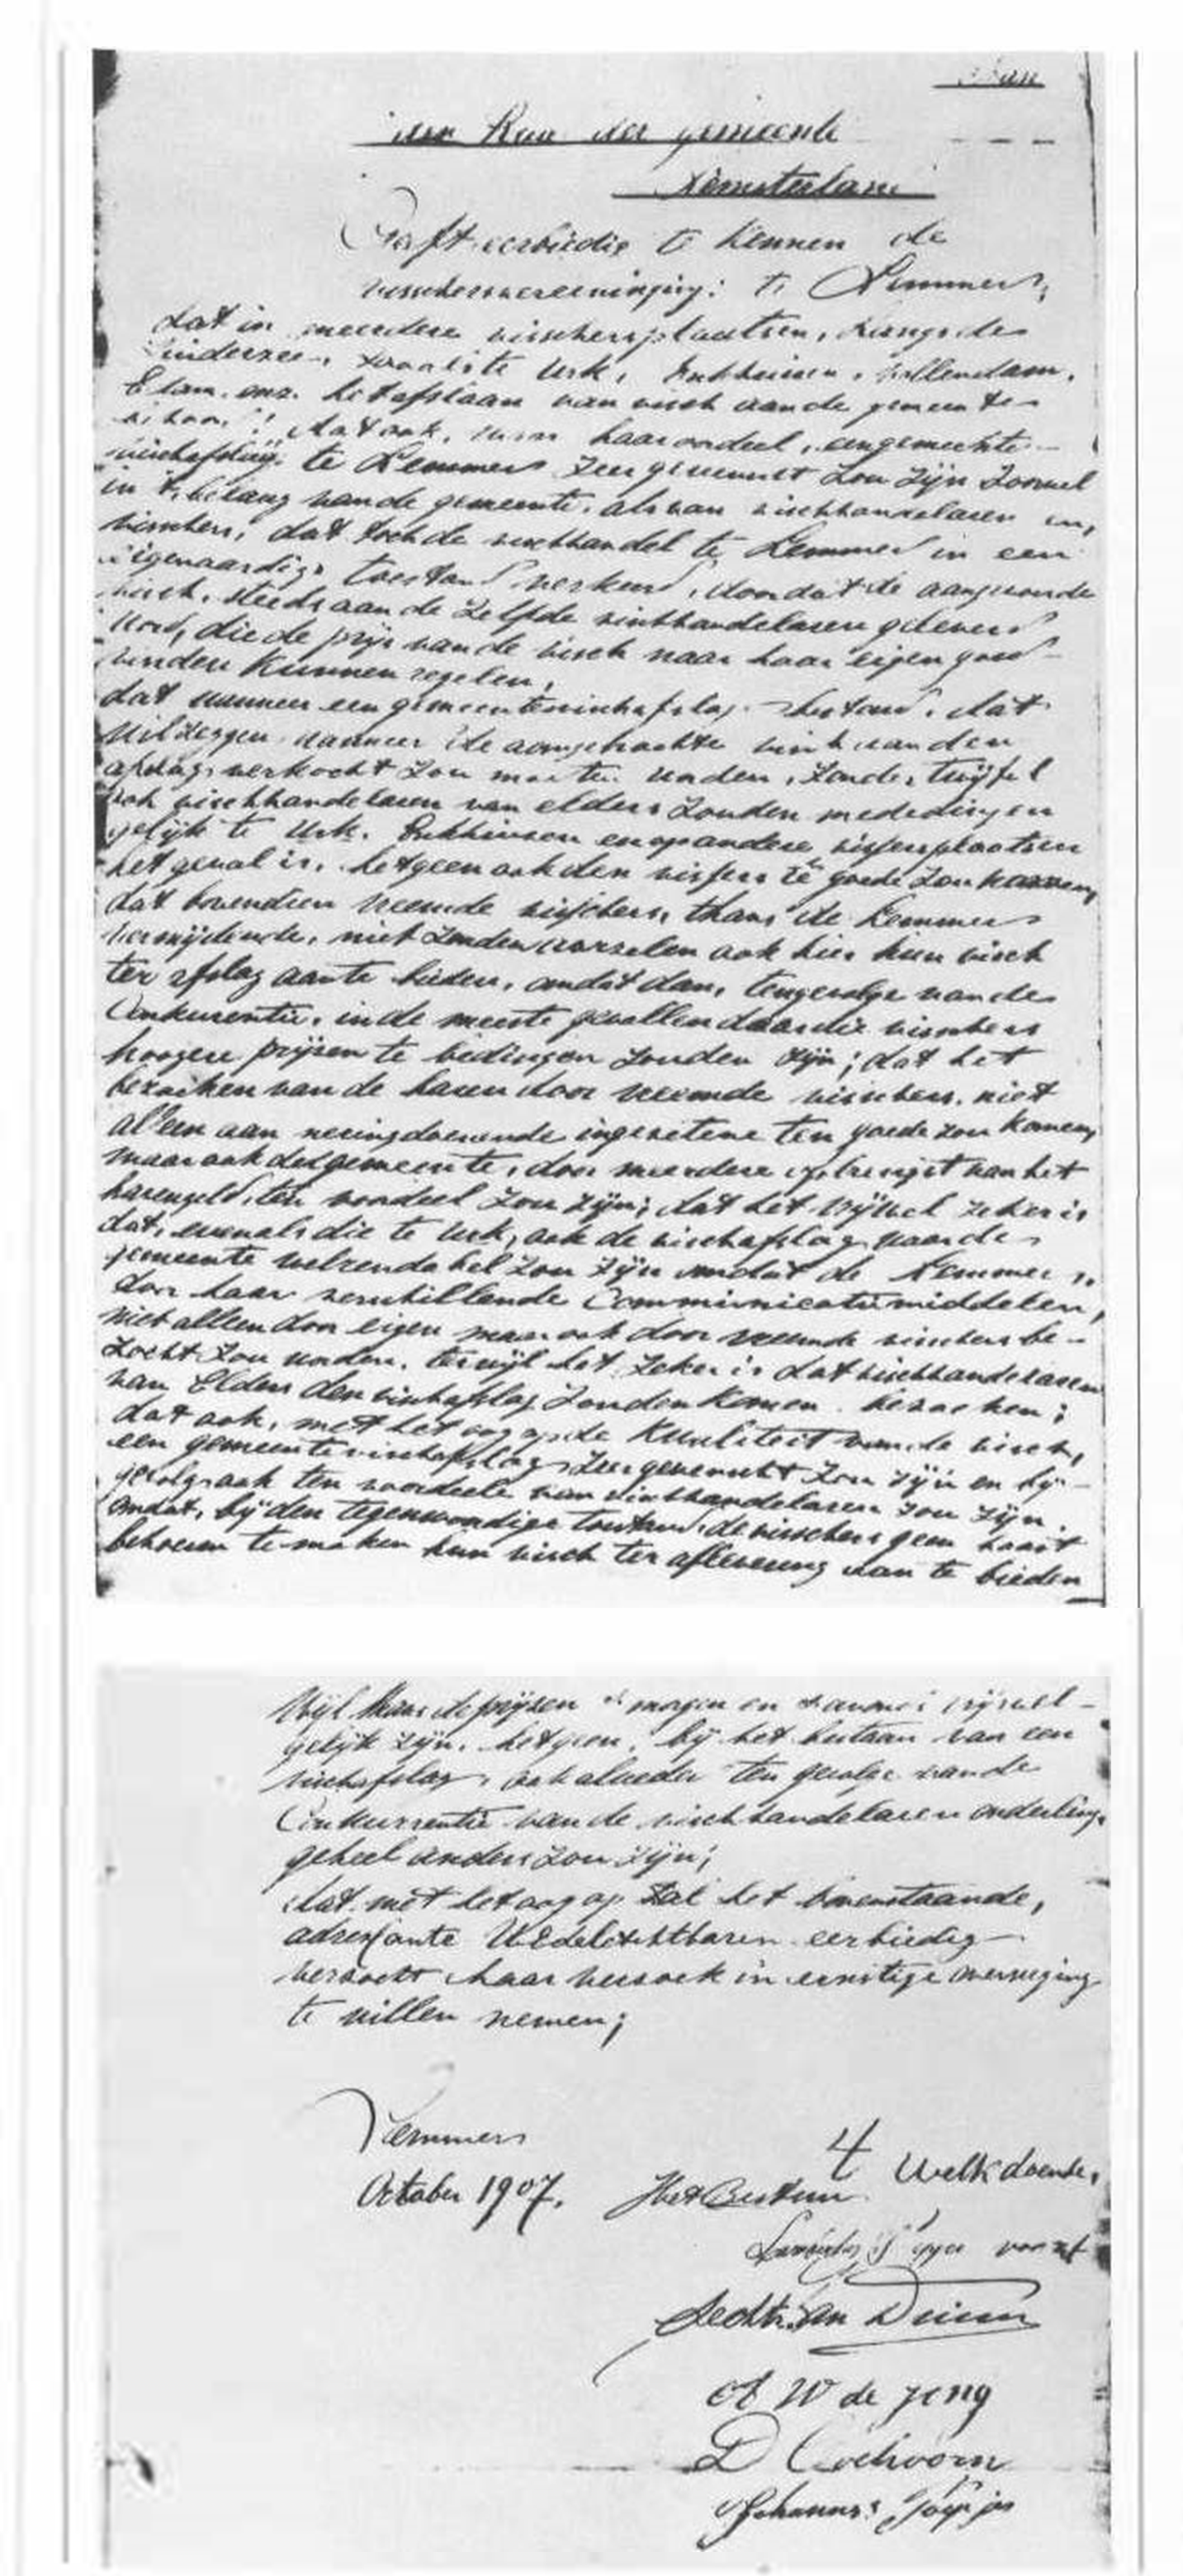 Aan
den Raad der gemeente
Lemsterland
Geeft eerbiedig te kennen de
visschersvereeniging: te Lemmer,
dat in meerdere visschersplaatsen, langs de
Zuiderzee, zooals te Urk, Enkhuizen, Vollendam,
Edam, enz. het afslaan van visch aan de gemeente
dat ook, naar haar oordeel, een gemeente-
vischafslag te Lemmer zeer gewenscht zou zijn zoowel
in 't belang van de gemeente, als van vischhandelaren en,
visschers, dat toch de vischhandel te Lemmer in een
eigenaardige toestand verkeerd, doordat de aangevoerde
visch, steeds aan de zelfde vischhandelaren geleverd
word, die de prijs van de visch naar haar eigen goed-
vinden kunnen regelen,
dat wanneer een gemeentevischafslag bestond, dat
wil zeggen wanneer de aangebrachte visch aan den
afslag verkocht zou moeten worden, zonder twijfel
ook vischhandelaren van elders zouden mededingen
gelijk te Urk, Enkhuizen en op andere vissersplaatsen
het geval is, hetgeen ook den vissers te goede zou komen,
dat bovendien vreemde visschers, thans de Lemmer
vermijdende, niet zouden aarselen ook hier hun visch
ter afslag aan te bieden, omdat dan, tengevolge van de
Conkurentie, in de meeste gevallen door die visschers
hoogere prijsen te bedingen zouden zijn; dat het
bezoeken van de haven door vreemde visschers, niet
alleen aan neeringdoenende ingezetene ten goede zou komen,
maar ook de gemeente, door meerdere opbrengst van het
havengeld, ten voordeel zou zijn; dat het vrijwel zeker is
dat, evenals die te Urk, ook de vischafslag voor de
gemeente welrendabel zou zijn omdat de Lemmer,
door haar verschillende Communicatiemiddelen,
niet alleen door eigen maar ook door vreemde visschers be-
zocht zou worden, terwijl het zeker is dat vischhandelaren
van Elders den vischafslag zouden komen bezoeken;
dat ook, met het oog op de Kwaliteit van de visch,
een gemeentevischafslag zeer gewenscht zou zijn en bij-
gevolg ook ten voordeele van vischhandelaren zou zijn
omdat, bij den tegenwoordige toestand, de visschers geen haast
behoeven te maken hun visch ter aflevering aan te bieden
Wijl thans de prijsen 's morgen en 's avonds vrijwel
gelijk zijn, hetgeen, bij het bestaan van een
vischafslag, ook alweder ten gevolge van de
Conkurrentie van de vischhandelaren onderling,
geheel anders zou zijn;
dat met het oog op al het bovenstaande,
adressante UEdelachtbaren eerbiedig
versoekt haar versoek in ernstige overweging
te willen nemen;
Lemmer
October 1907.
't Welk doende,
Het Bestuur
voorzt
van Dum
W de Jong
D Coehoorn
Johannes